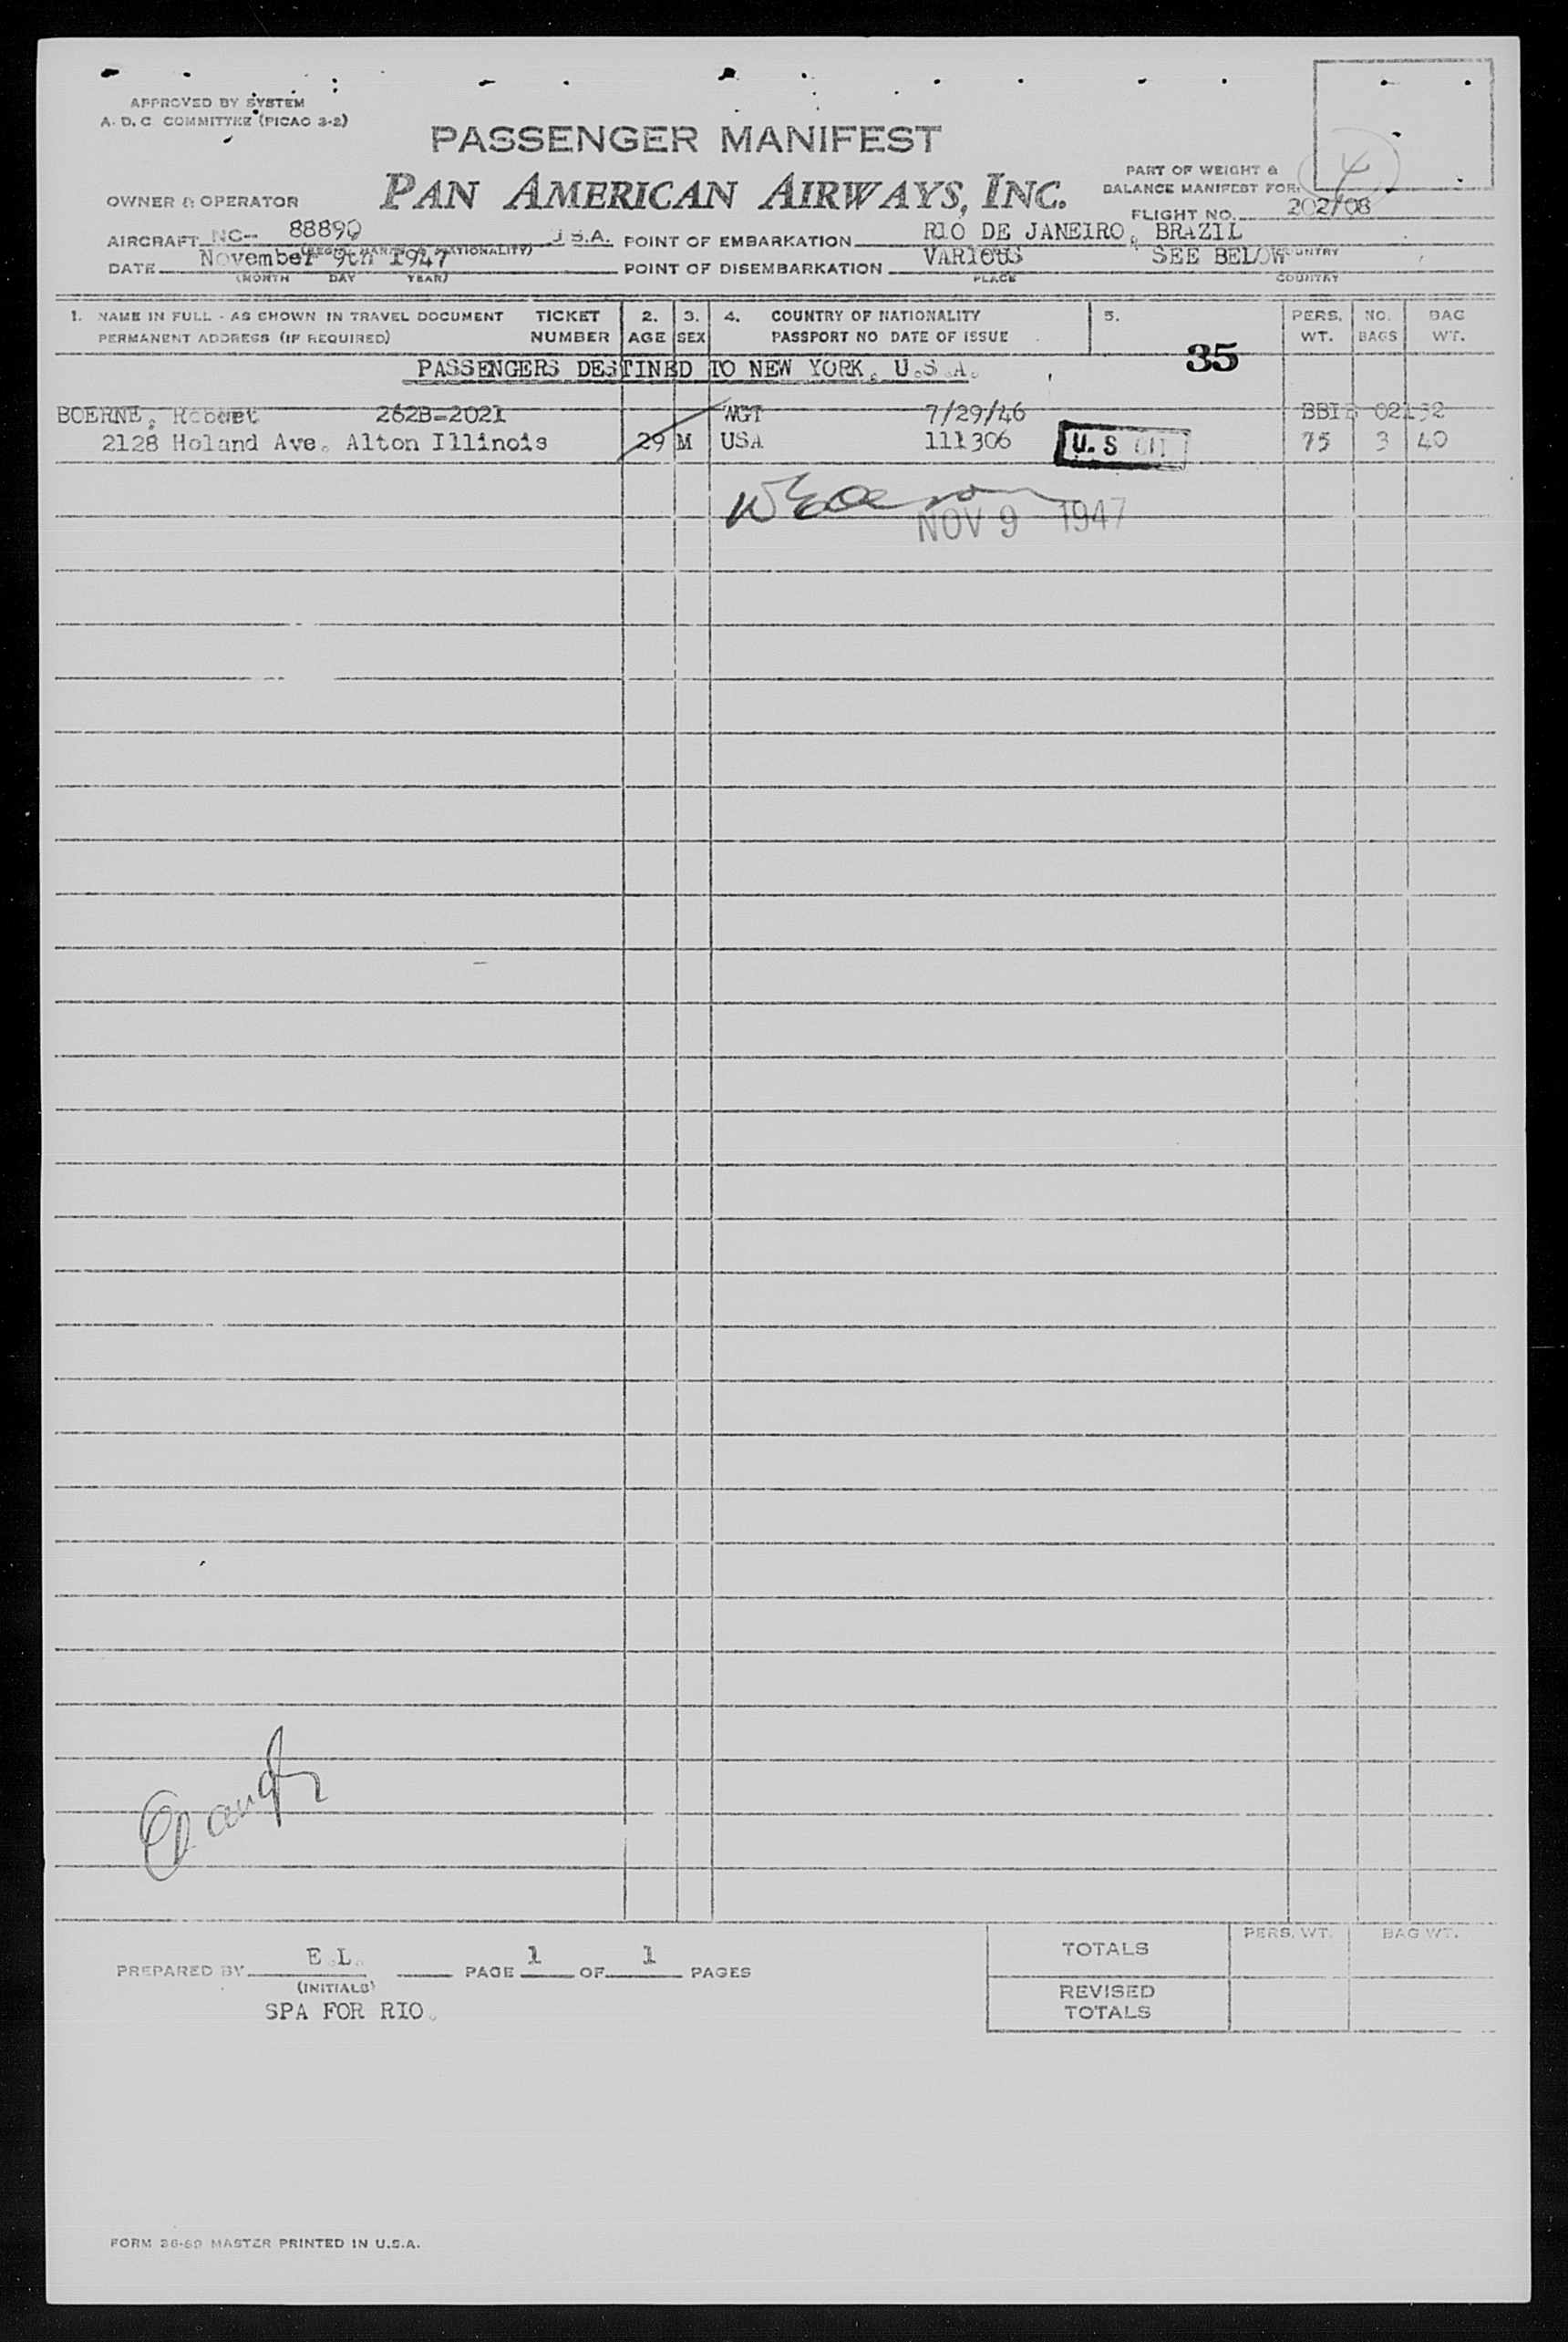 APPROVED BY SYSTEM
A. D. C. COMMITTEE (PICAO 3-2)
PASSENGER MANIFEST
PAN AMERICAN AIRWAYS, INC.
PART OF WEIGHT &
BALANCE MANIFEST FOR:
4
OWNER & OPERATOR
FLIGHT NO. 202/08
AIRCRAFT NC-- 88890 U.S.A. POINT OF EMBARKATION RIO DE JANEIRO, BRAZIL
DATE November 9th 1947 POINT OF DISEMBARKATION VARIOUS SEE BELOW
(MONTH DAY YEAR) PLACE COUNTRY
1. NAME IN FULL - AS SHOWN IN TRAVEL DOCUMENT TICKET 2. 3. 4. COUNTRY OF NATIONALITY 5. PERS. NO. BAG
PERMANENT ADDRESS (IF REQUIRED) NUMBER AGE SEX PASSPORT NO DATE OF ISSUE WT. BAGS WT.
35
PASSENGERS DESTINED TO NEW YORK, U.S.A.
BOERNE, Robert 262B-2021 WGT 7/29/46
2128 Holand Ave. Alton Illinois 29 M USA 111306 U.S CIT 75 3 40
NOV 9 1947
PREPARED BY E.L. PAGE 1 OF 1 PAGES
(INITIALS)
SPA FOR RIO.
PERS. WT. BAG WT.
TOTALS
REVISED
TOTALS
FORM 36-69 MASTER PRINTED IN U.S.A.